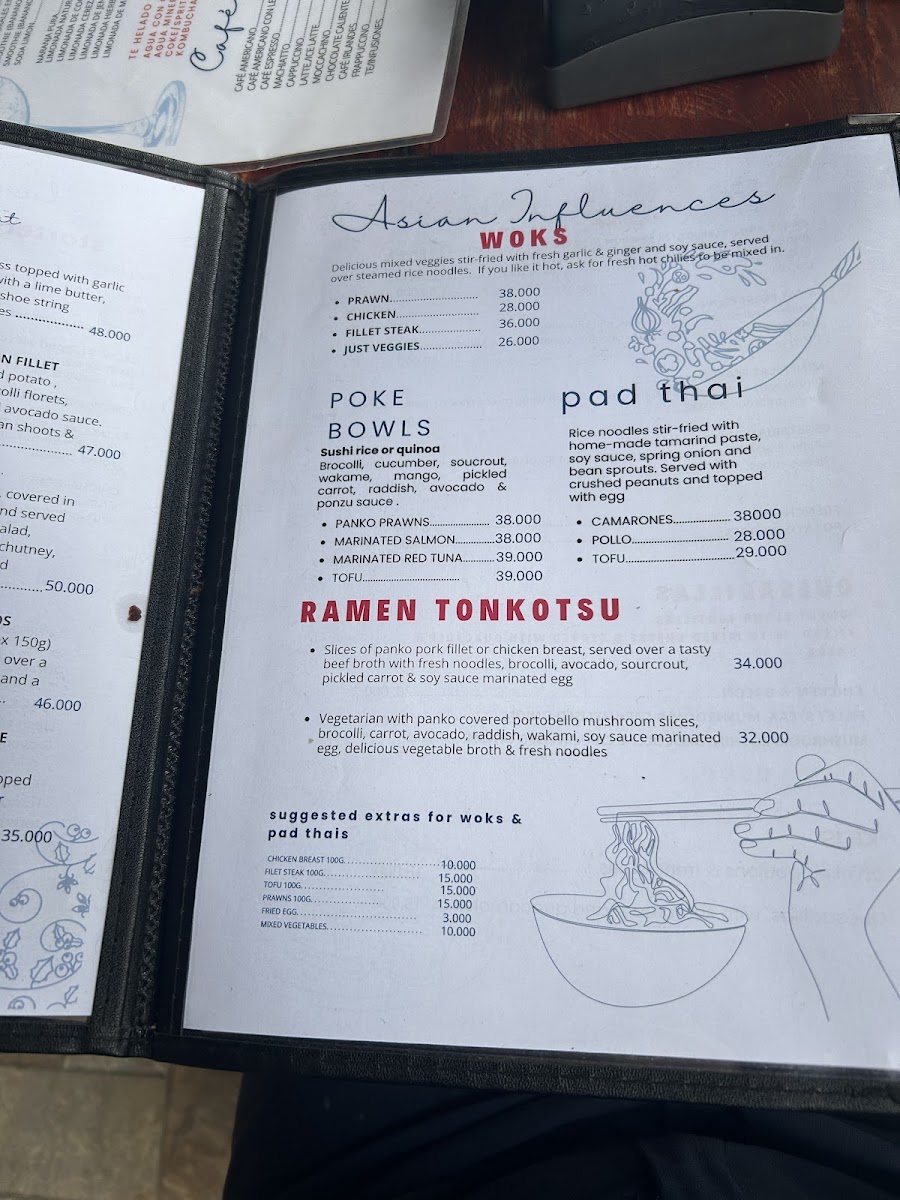 NARANJA PURA
LIMONADA NATUR
LIMONADA DE CO
LIMONADA CEREZ
LIMONADA DE JEN
LIMONADA HIERB
LIMONADA DE M
TE HELADO
AGUA CON
AGUA MINE
COKE/SPRI
KOMBUCHA
Café
CAFÉ AMERICANO
CAFÉ AMERICANO CON LE
CAFÉ ESPRESSO
MACHIATTO
CAPPUCCINO
LATTE/ICE LATTE
MOCCACHINO
CHOCOLATE CALIENTE
CAFÉ IRLANDES
FRAPPUCCINO
TE/INFUSIONES
ss topped with garlic
with a lime butter,
shoe string
es .................. 48.000
N FILLET
d potato ,
colli florets,
avocado sauce.
an shoots &
.................. 47.000
, covered in
nd served
alad,
chutney,
d
........... 50.000
OS
x 150g)
over a
and a
.. 46.000
E
pped
r
35.000
Asian Influences
WOKS
Delicious mixed veggies stir-fried with fresh garlic & ginger and soy sauce, served
over steamed rice noodles. If you like it hot, ask for fresh hot chilies to be mixed in.
• PRAWN........................... 38.000
• CHICKEN......................... 28.000
• FILLET STEAK................... 36.000
• JUST VEGGIES................... 26.000
POKE
BOWLS
Sushi rice or quinoa
Brocolli, cucumber, soucrout,
wakame, mango, pickled
carrot, raddish, avocado &
ponzu sauce .
• PANKO PRAWNS.................... 38.000
• MARINATED SALMON.............38.000
• MARINATED RED TUNA..........39.000
• TOFU..................................... 39.000
pad thai
Rice noodles stir-fried with
home-made tamarind paste,
soy sauce, spring onion and
bean sprouts. Served with
crushed peanuts and topped
with egg
• CAMARONES................... 38000
• POLLO................................ 28.000
• TOFU...................................29.000
RAMEN TONKOTSU
• Slices of panko pork fillet or chicken breast, served over a tasty
beef broth with fresh noodles, brocolli, avocado, sourcrout, 34.000
pickled carrot & soy sauce marinated egg
• Vegetarian with panko covered portobello mushroom slices,
brocolli, carrot, avocado, raddish, wakami, soy sauce marinated 32.000
egg, delicious vegetable broth & fresh noodles
suggested extras for woks &
pad thais
CHICKEN BREAST 100G.......................10.000
FILET STEAK 100G............................ 15.000
TOFU 100G..................... 15.000
PRAWNS 100G..................... 15.000
FRIED EGG............................ 3.000
MIXED VEGETABLES...................... 10,000